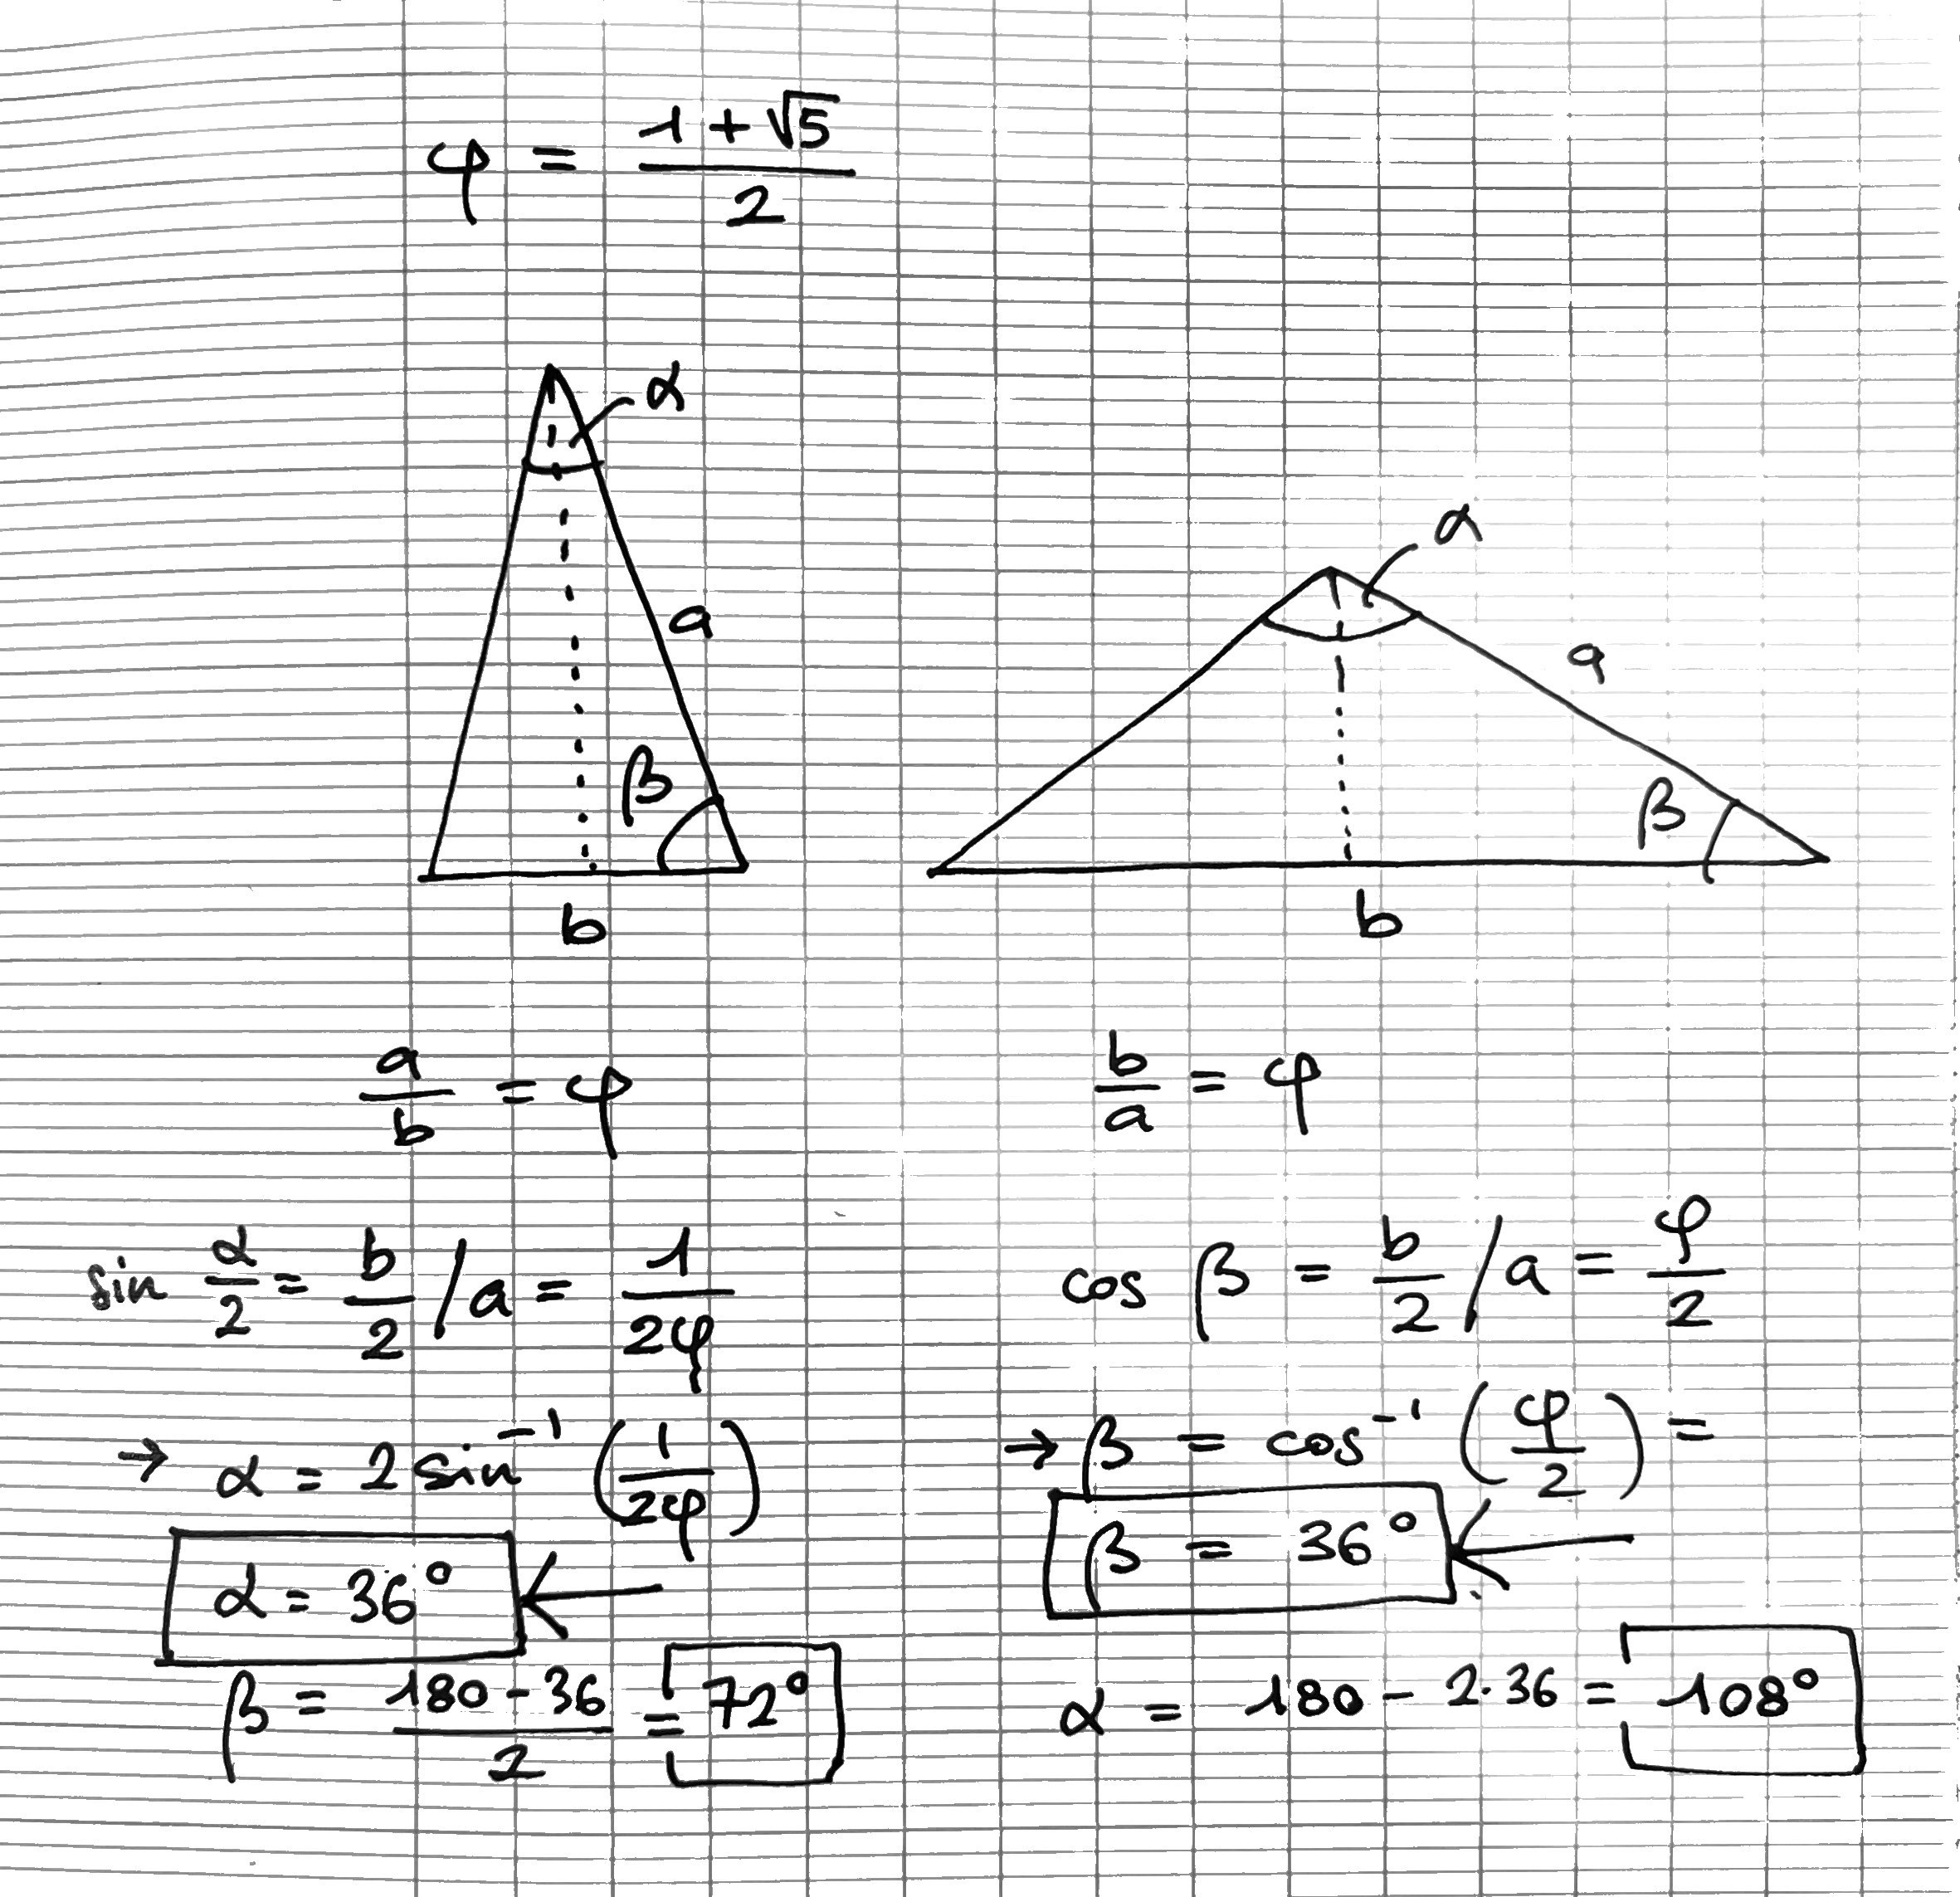 φ = (1 + √5) / 2
α
a
β
b
α
a
β
b
a/b = φ
b/a = φ
sin α/2 = b/2 / a = 1/2φ
→ α = 2 sin⁻¹ (1/2φ)
α = 36°
β = (180 - 36)/2 = 72°
cos β = b/2 / a = φ/2
→ β = cos⁻¹ (φ/2) =
β = 36°
α = 180 - 2·36 = 108°